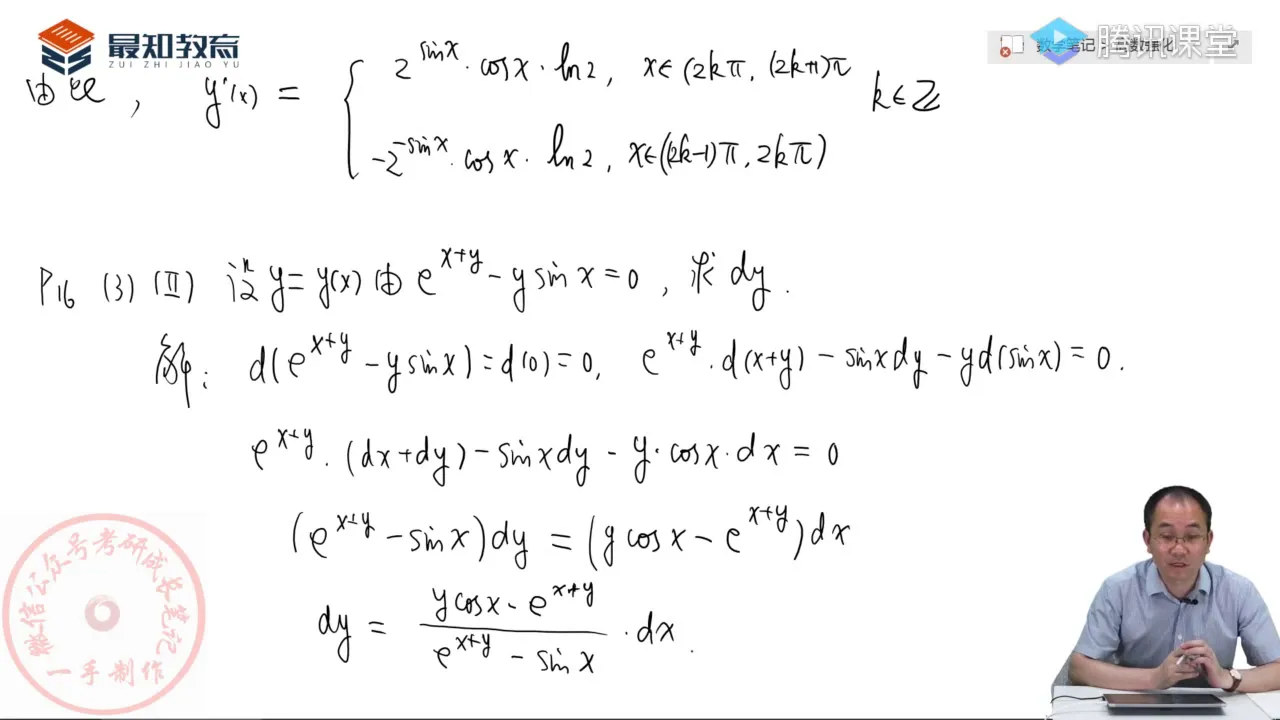 最知教育
ZUI ZHI JIAO YU
腾讯课堂
由此, y'(x) = { 2^{sinx}·cosx·ln2, x∈(2kπ, (2k+1)π
-2^{-sinx}·cosx·ln2, x∈((2k-1)π, 2kπ) k∈Z
P16 (3) (II) 设 y=y(x) 由 e^{x+y} - y sinx = 0, 求 dy.
解: d(e^{x+y} - y sinx) = d(0) = 0, e^{x+y}·d(x+y) - sinxdy - yd(sinx) = 0.
e^{x+y}·(dx+dy) - sinxdy - y·cosx·dx = 0
(e^{x+y} - sinx)dy = (y cosx - e^{x+y})dx
dy = \frac{y cosx - e^{x+y}}{e^{x+y} - sinx}·dx.
微信公众号考研成长笔记
一手制作